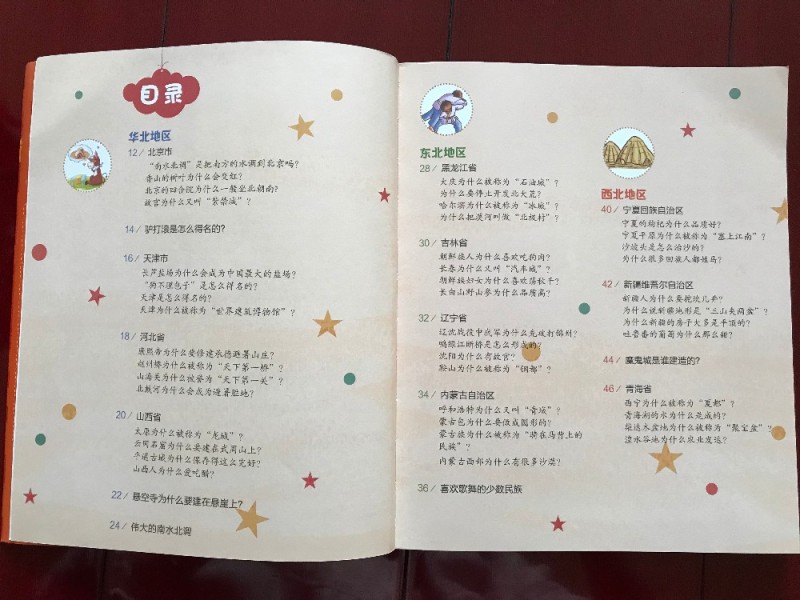 目录
华北地区
12 / 北京市
“南水北调”是把南方的水调到北京吗？
香山的树叶为什么会变红？
北京的四合院为什么一般坐北朝南？
故宫为什么又叫“紫禁城”？
14 / 驴打滚是怎么得名的？
16 / 天津市
长芦盐场为什么会成为中国最大的盐场？
“狗不理包子”是怎么得名的？
天津是怎么得名的？
天津为什么被称为“世界建筑博物馆”？
18 / 河北省
康熙帝为什么要修建承德避暑山庄？
赵州桥为什么被称为“天下第一桥”？
山海关为什么被誉为“天下第一关”？
北戴河为什么会成为避暑胜地？
20 / 山西省
太原为什么被称为“龙城”？
云冈石窟为什么要建在武周山上？
平遥古城为什么保存得这么完好？
山西人为什么爱吃醋？
22 / 悬空寺为什么要建在悬崖上？
24 / 伟大的南水北调
东北地区
28 / 黑龙江省
大庆为什么被称为“石油城”？
为什么要停止开发北大荒？
哈尔滨为什么被称为“冰城”？
为什么把漠河叫做“北极村”？
30 / 吉林省
朝鲜族人为什么喜欢吃狗肉？
长春为什么又叫“汽车城”？
朝鲜族妇女为什么喜欢荡秋千？
长白山野山参为什么品质高？
32 / 辽宁省
辽沈战役中我军为什么先攻打锦州？
鸭绿江断桥是怎么形成的？
沈阳为什么有故宫？
鞍山为什么被称为“钢都”？
34 / 内蒙古自治区
呼和浩特为什么又叫“青城”？
蒙古包为什么要做成圆形的？
蒙古族为什么被称为“骑在马背上的
民族”？
内蒙古西部为什么有很多沙漠？
36 / 喜欢歌舞的少数民族
西北地区
40 / 宁夏回族自治区
宁夏的枸杞为什么品质好？
宁夏平原为什么被称为“塞上江南”？
沙坡头是怎么治沙的？
为什么很多回族人都姓马？
42 / 新疆维吾尔自治区
新疆人为什么要挖坎儿井？
为什么说新疆地形是“三山夹两盆”？
为什么新疆的房子大多是平顶的？
吐鲁番的葡萄为什么那么甜？
44 / 魔鬼城是谁建造的？
46 / 青海省
西宁为什么被称为“夏都”？
青海湖的水为什么是咸的？
柴达木盆地为什么被称为“聚宝盆”？
湟水谷地为什么农业发达？